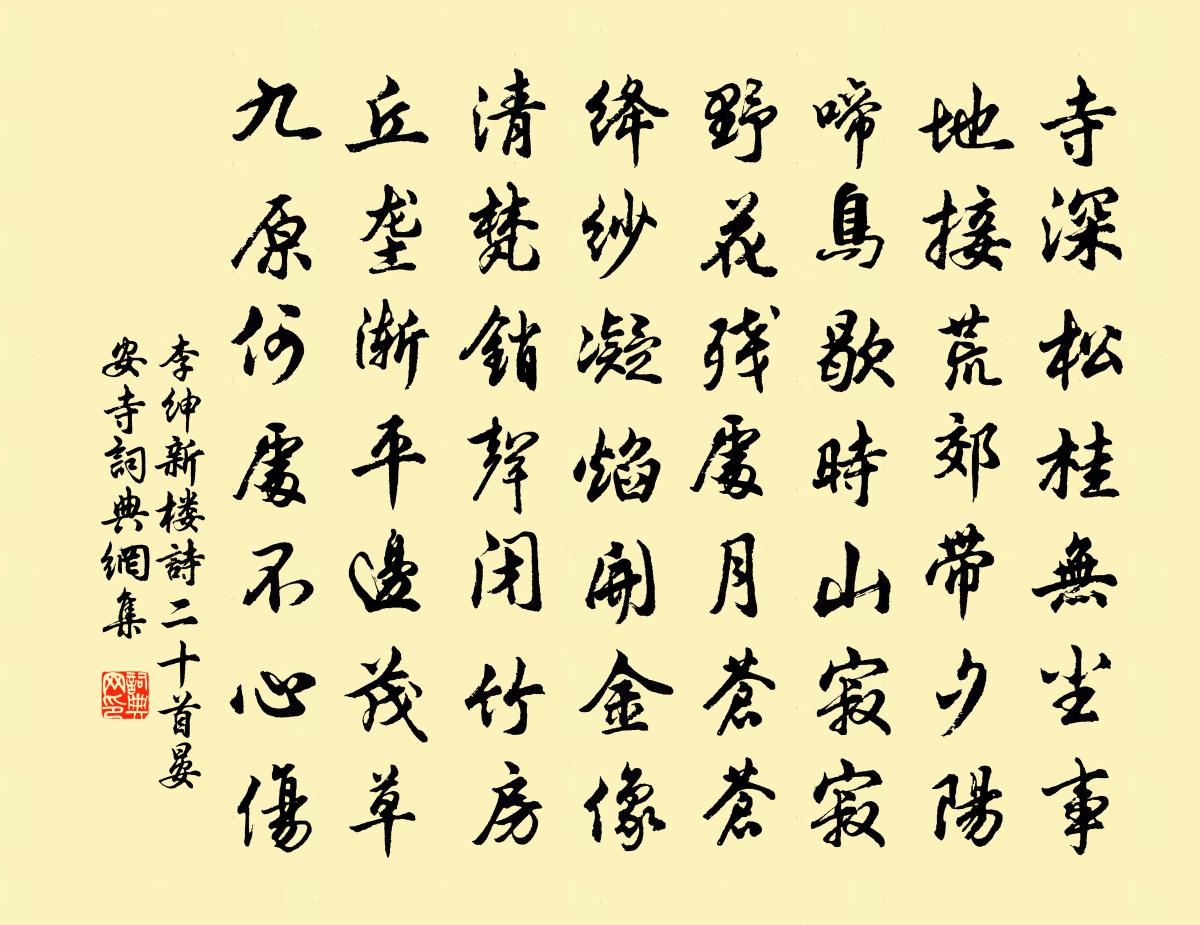 寺深松桂無尘事
地接荒郊带夕陽
啼鳥歇時山寂寂
野花残處月蒼蒼
绛纱凝焰開金像
清梵銷聲闭竹房
丘垄渐平邊茂草
九原何處不心傷
李绅新楼詩二十首晏
安寺詞典網集
詞典
网印